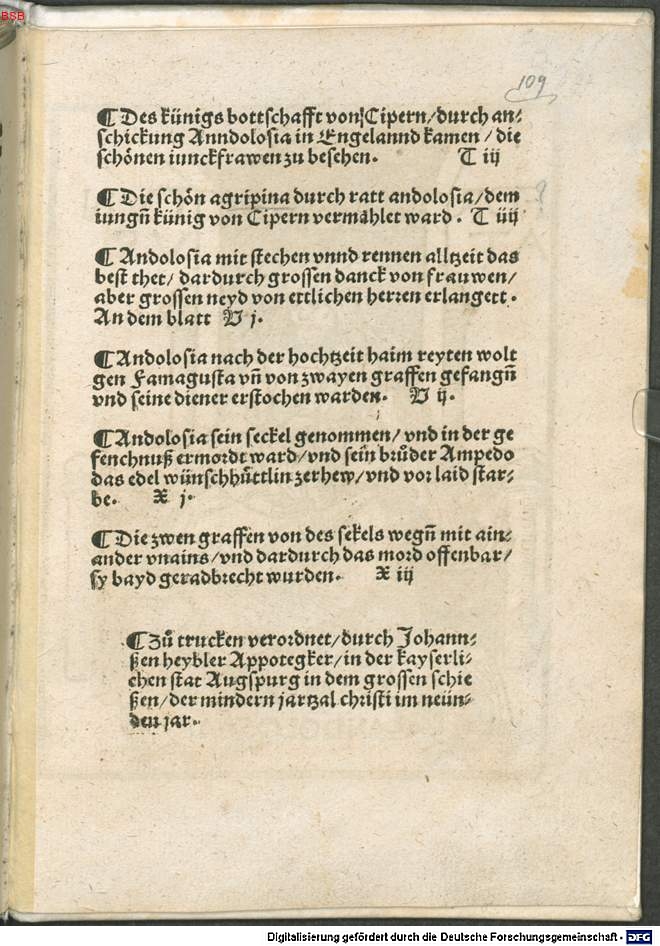 BSB
109
¶ Des künigs bottschafft von Cipern/durch an⸗
schickung Anndolosia in Engelannd kamen / die
schönen iunckfrawen zu besehen. T iij
¶ Die schön agripina durch ratt andolosia/dem
iungn̄ künig von Cipern vermåhlet ward. T iiij
¶ Andolosia mit stechen vnnd rennen alltzeit das
best thet/ dardurch grossen danck von frauwen/
aber grossen neyd von ettlichen herren erlangett.
An dem blatt V j.
¶ Andolosia nach der hochtzeit haim reyten wolt
gen Famagusta vn̄ von zwayen graffen gefangn̄
vnd seine diener erstochen warden. V ij.
¶ Andolosia sein seckel genommen/ vnd in der ge
fenchnuß ermordt ward/vnd sein brůder Ampedo
das edel wünschhüttlin zerhew/vnd vor laid star⸗
be. X j.
¶ Die zwen graffen von des sekels wegn̄ mit ain⸗
ander vnains/vnd dardurch das mord offenbar/
sy bayd geradbrecht wurden. X iij
¶ Zů trucken verordnet/durch Johann⸗
ßen heybler Appotegker/in der kayserli⸗
chen stat Augspurg in dem grossen schie
ßen/der mindern jartzal christi im neün⸗
den jar.
Digitalisierung gefördert durch die Deutsche Forschungsgemeinschaft - DFG